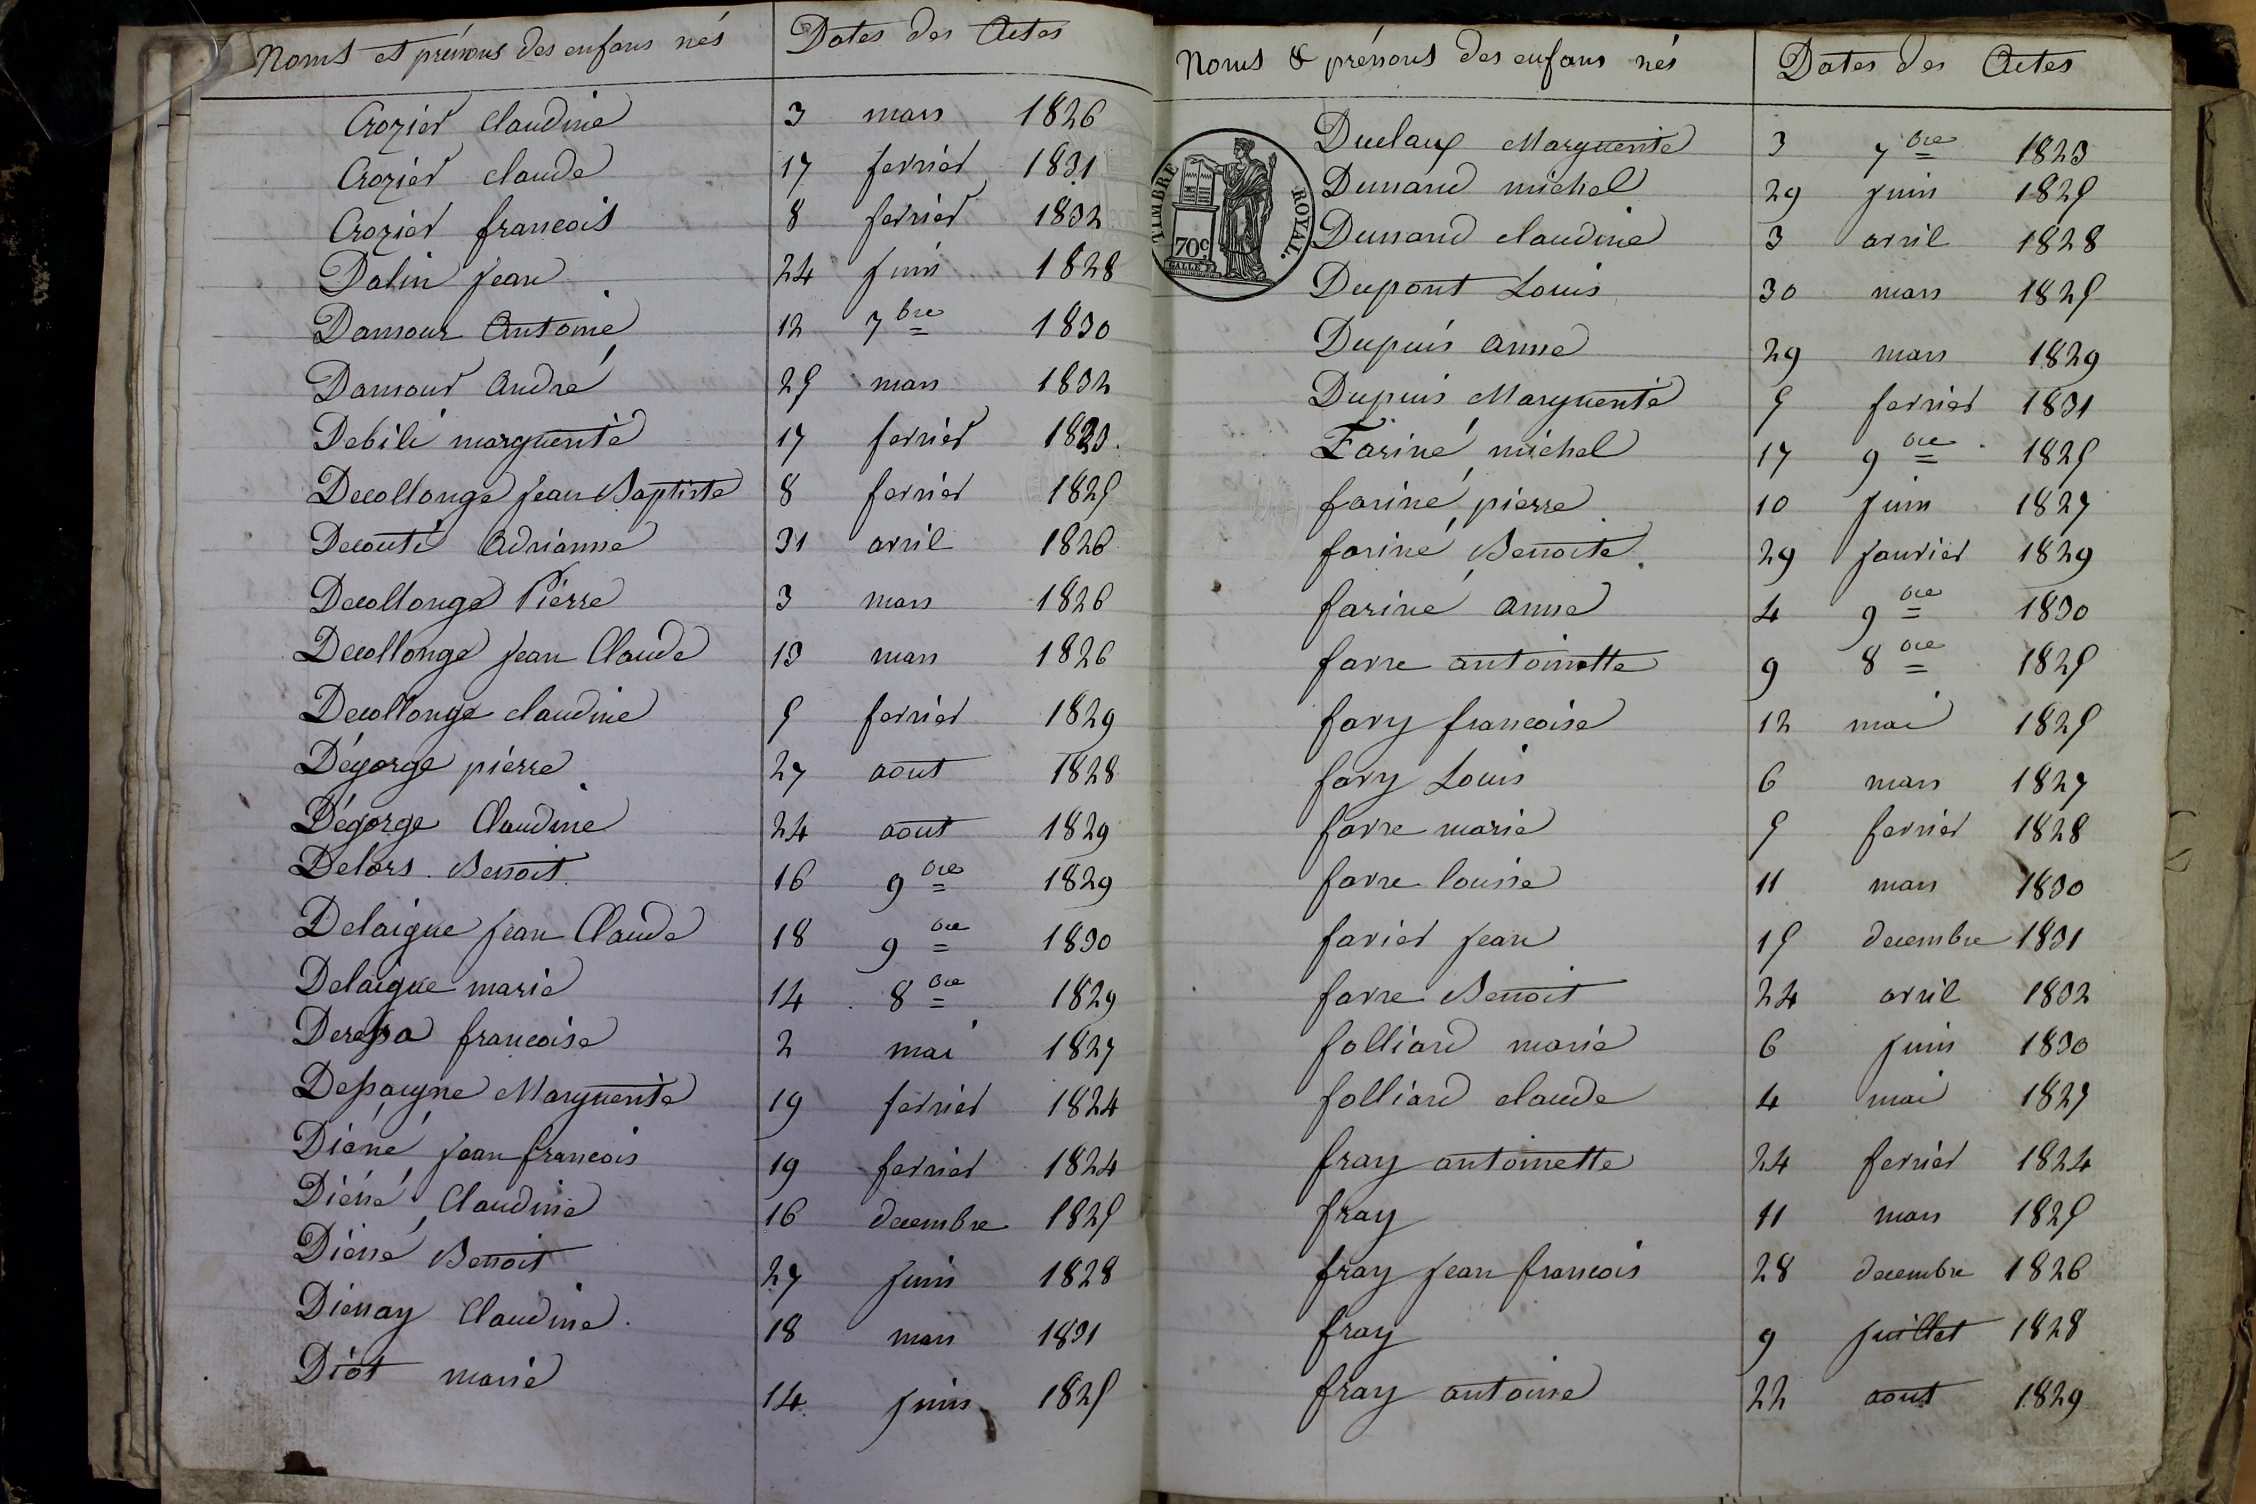 Noms et prénoms des enfans nés Dates des Actes
Crozier Claudine 3 mars 1826
Crozier Claude 17 fevrier 1831
Crozier francois 8 fevrier 1832
Dalin Jean 24 Juin 1828
Damour Antoine 12 7bre 1830
Damour André 25 mars 1832
Debilé marguerite 17 fevrier 1823.
Decollonge Jean Baptiste 8 fevrier 1825
Decouté Adrianne 31 avril 1826
Decollonge Pierre 3 mars 1826
Decollonge Jean Claude 13 mars 1826
Decollonge claudine 5 fevrier 1829
Dégorge pierre 27 aout 1828
Dégorge Claudine 24 aout 1829
Delors Benoit 16 9bre 1829
Delaigue Jean Claude 18 9bre 1830
Delaigue marie 14 8bre 1829
Deressa francoise 2 mai 1827
Dessaigne Marguerite 19 fevrier 1824
Diéné Jean francois 19 fevrier 1824
Diéné Claudine 16 decembre 1825
Diéné Benoit 27 Juin 1828
Diénay Claudine. 18 mars 1831
Diot marie 14 Juin 1825
Noms & prénoms des enfans nés Dates des Actes
TIMBRE ROYAL.
70c
Duclaux Marguerite 3 7bre 1823
Dunand michel 29 Juin 1825
Dunand claudine 3 avril 1828
Dupont Louis 30 mars 1825
Dupuis anne 29 mars 1829
Dupuis Marguerite 5 fevrier 1831
Fariné michel 17 9bre 1825
fariné pierre 10 Juin 1827
fariné Benoite. 29 Janvier 1829
fariné anne 4 9bre 1830
favre antoinette 9 8bre 1825
favy francoise 12 mai 1825
favy Louis 6 mars 1827
favre marie 5 fevrier 1828
favre louise 11 mars 1830
favier Jean 15 decembre 1831
favre Benoit 24 avril 1832
folliard marie 6 Juin 1830
folliard claude 4 mai 1827
fray antoinette 24 fevrier 1824
fray 11 mars 1825
fray Jean francois 28 decembre 1826
fray 9 Juillet 1828
fray antoine 22 aout 1829